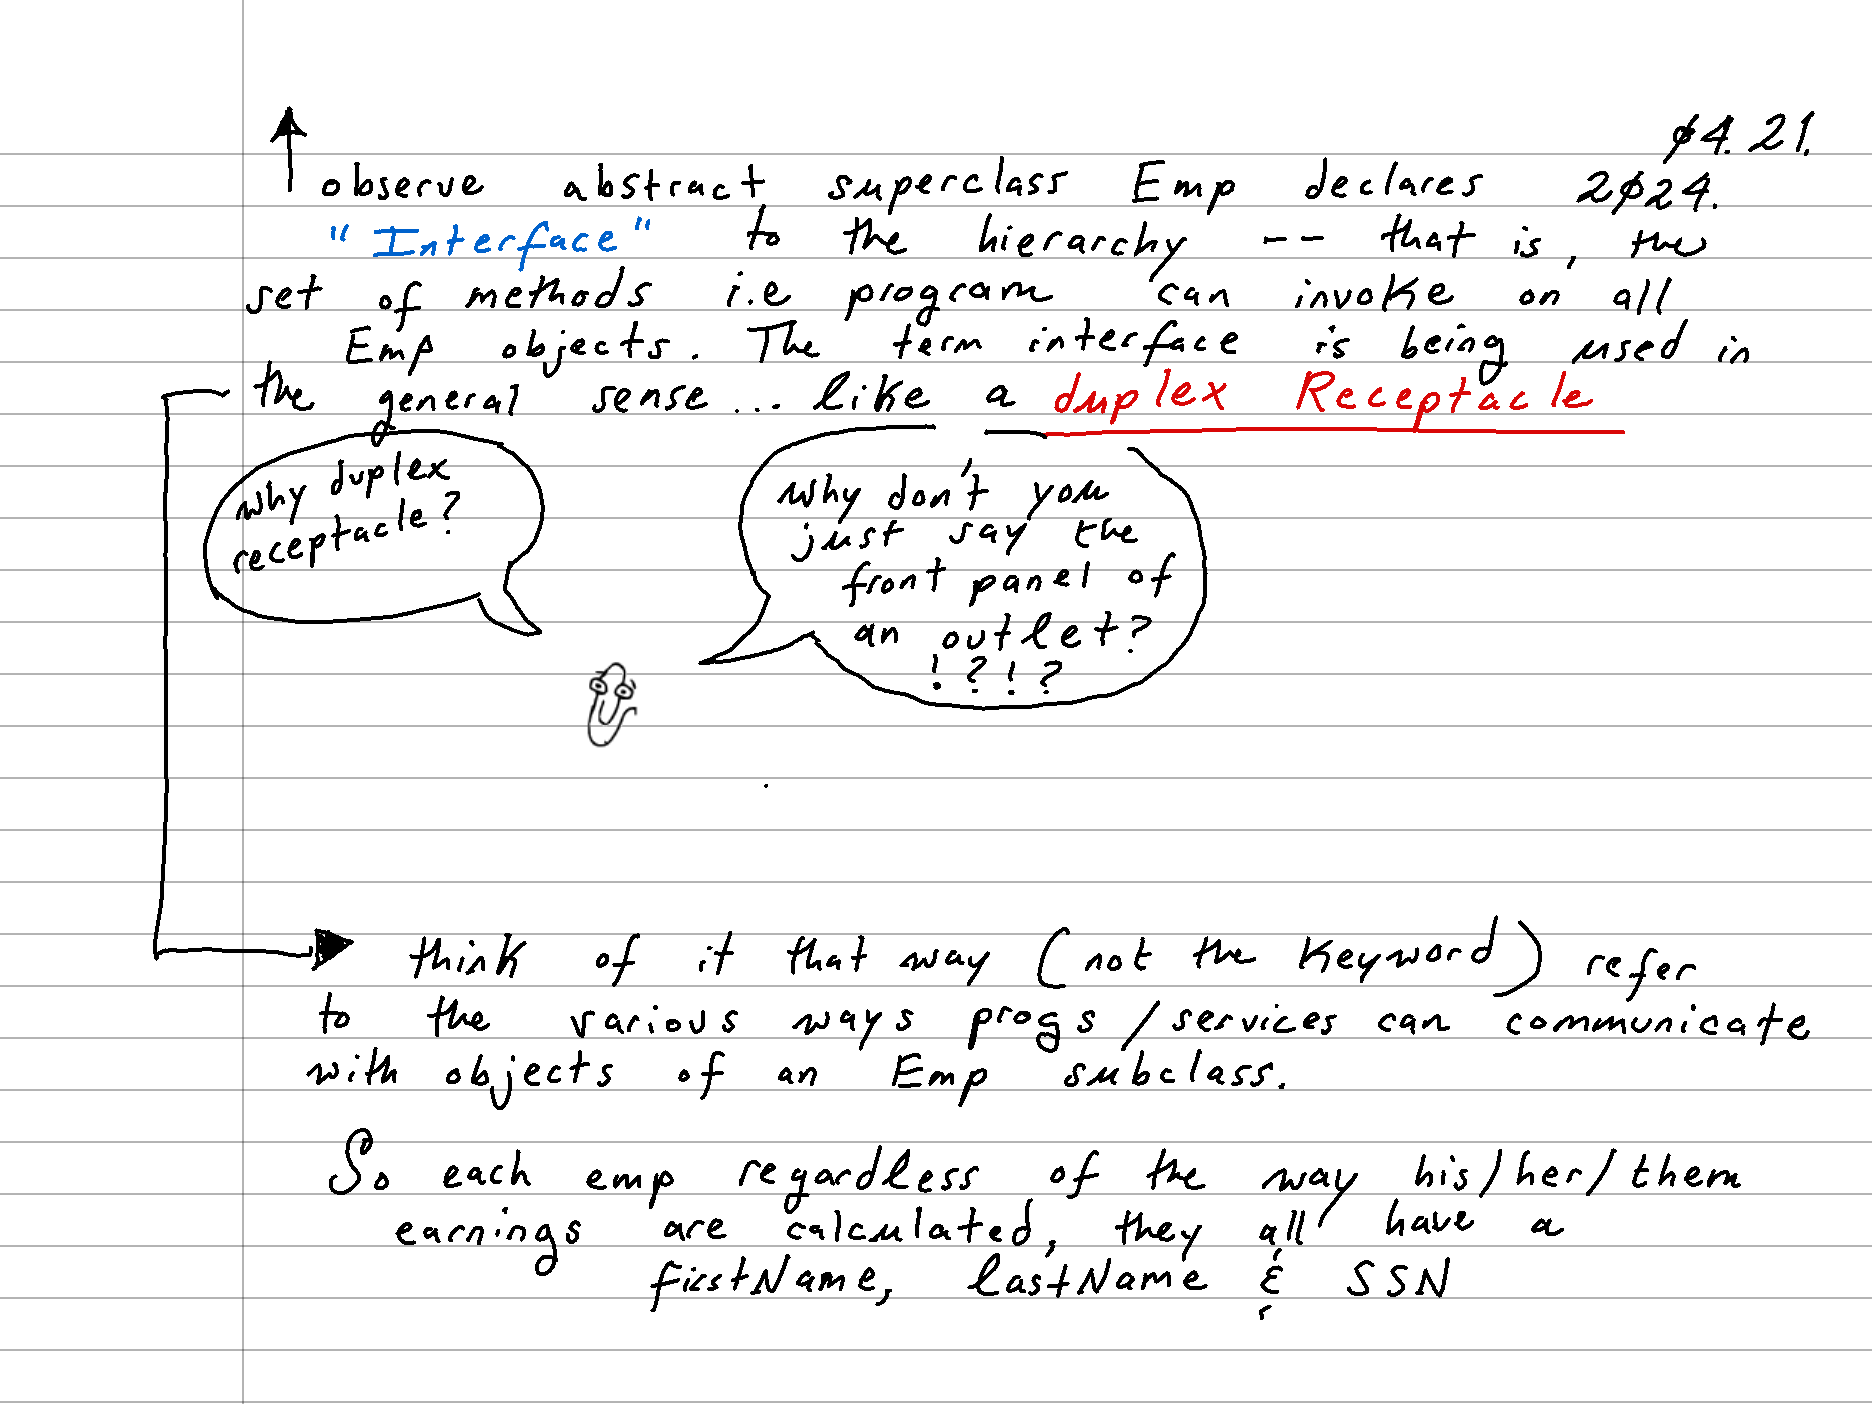 ø4. 21.
observe abstract superclass Emp declares 2ø24.
"Interface" to the hierarchy -- that is, the
set of methods i.e program can invoke on all
Emp objects. The term interface is being used in
the general sense... like a duplex Receptacle
why duplex
receptacle?
why don't you
just say the
front panel of
an outlet?
!?!?
think of it that way (not the keyword) refer
to the various ways progs/services can communicate
with objects of an Emp subclass.
So each emp regardless of the way his/her/them
earnings are calculated, they all have a
firstName, lastName & SSN